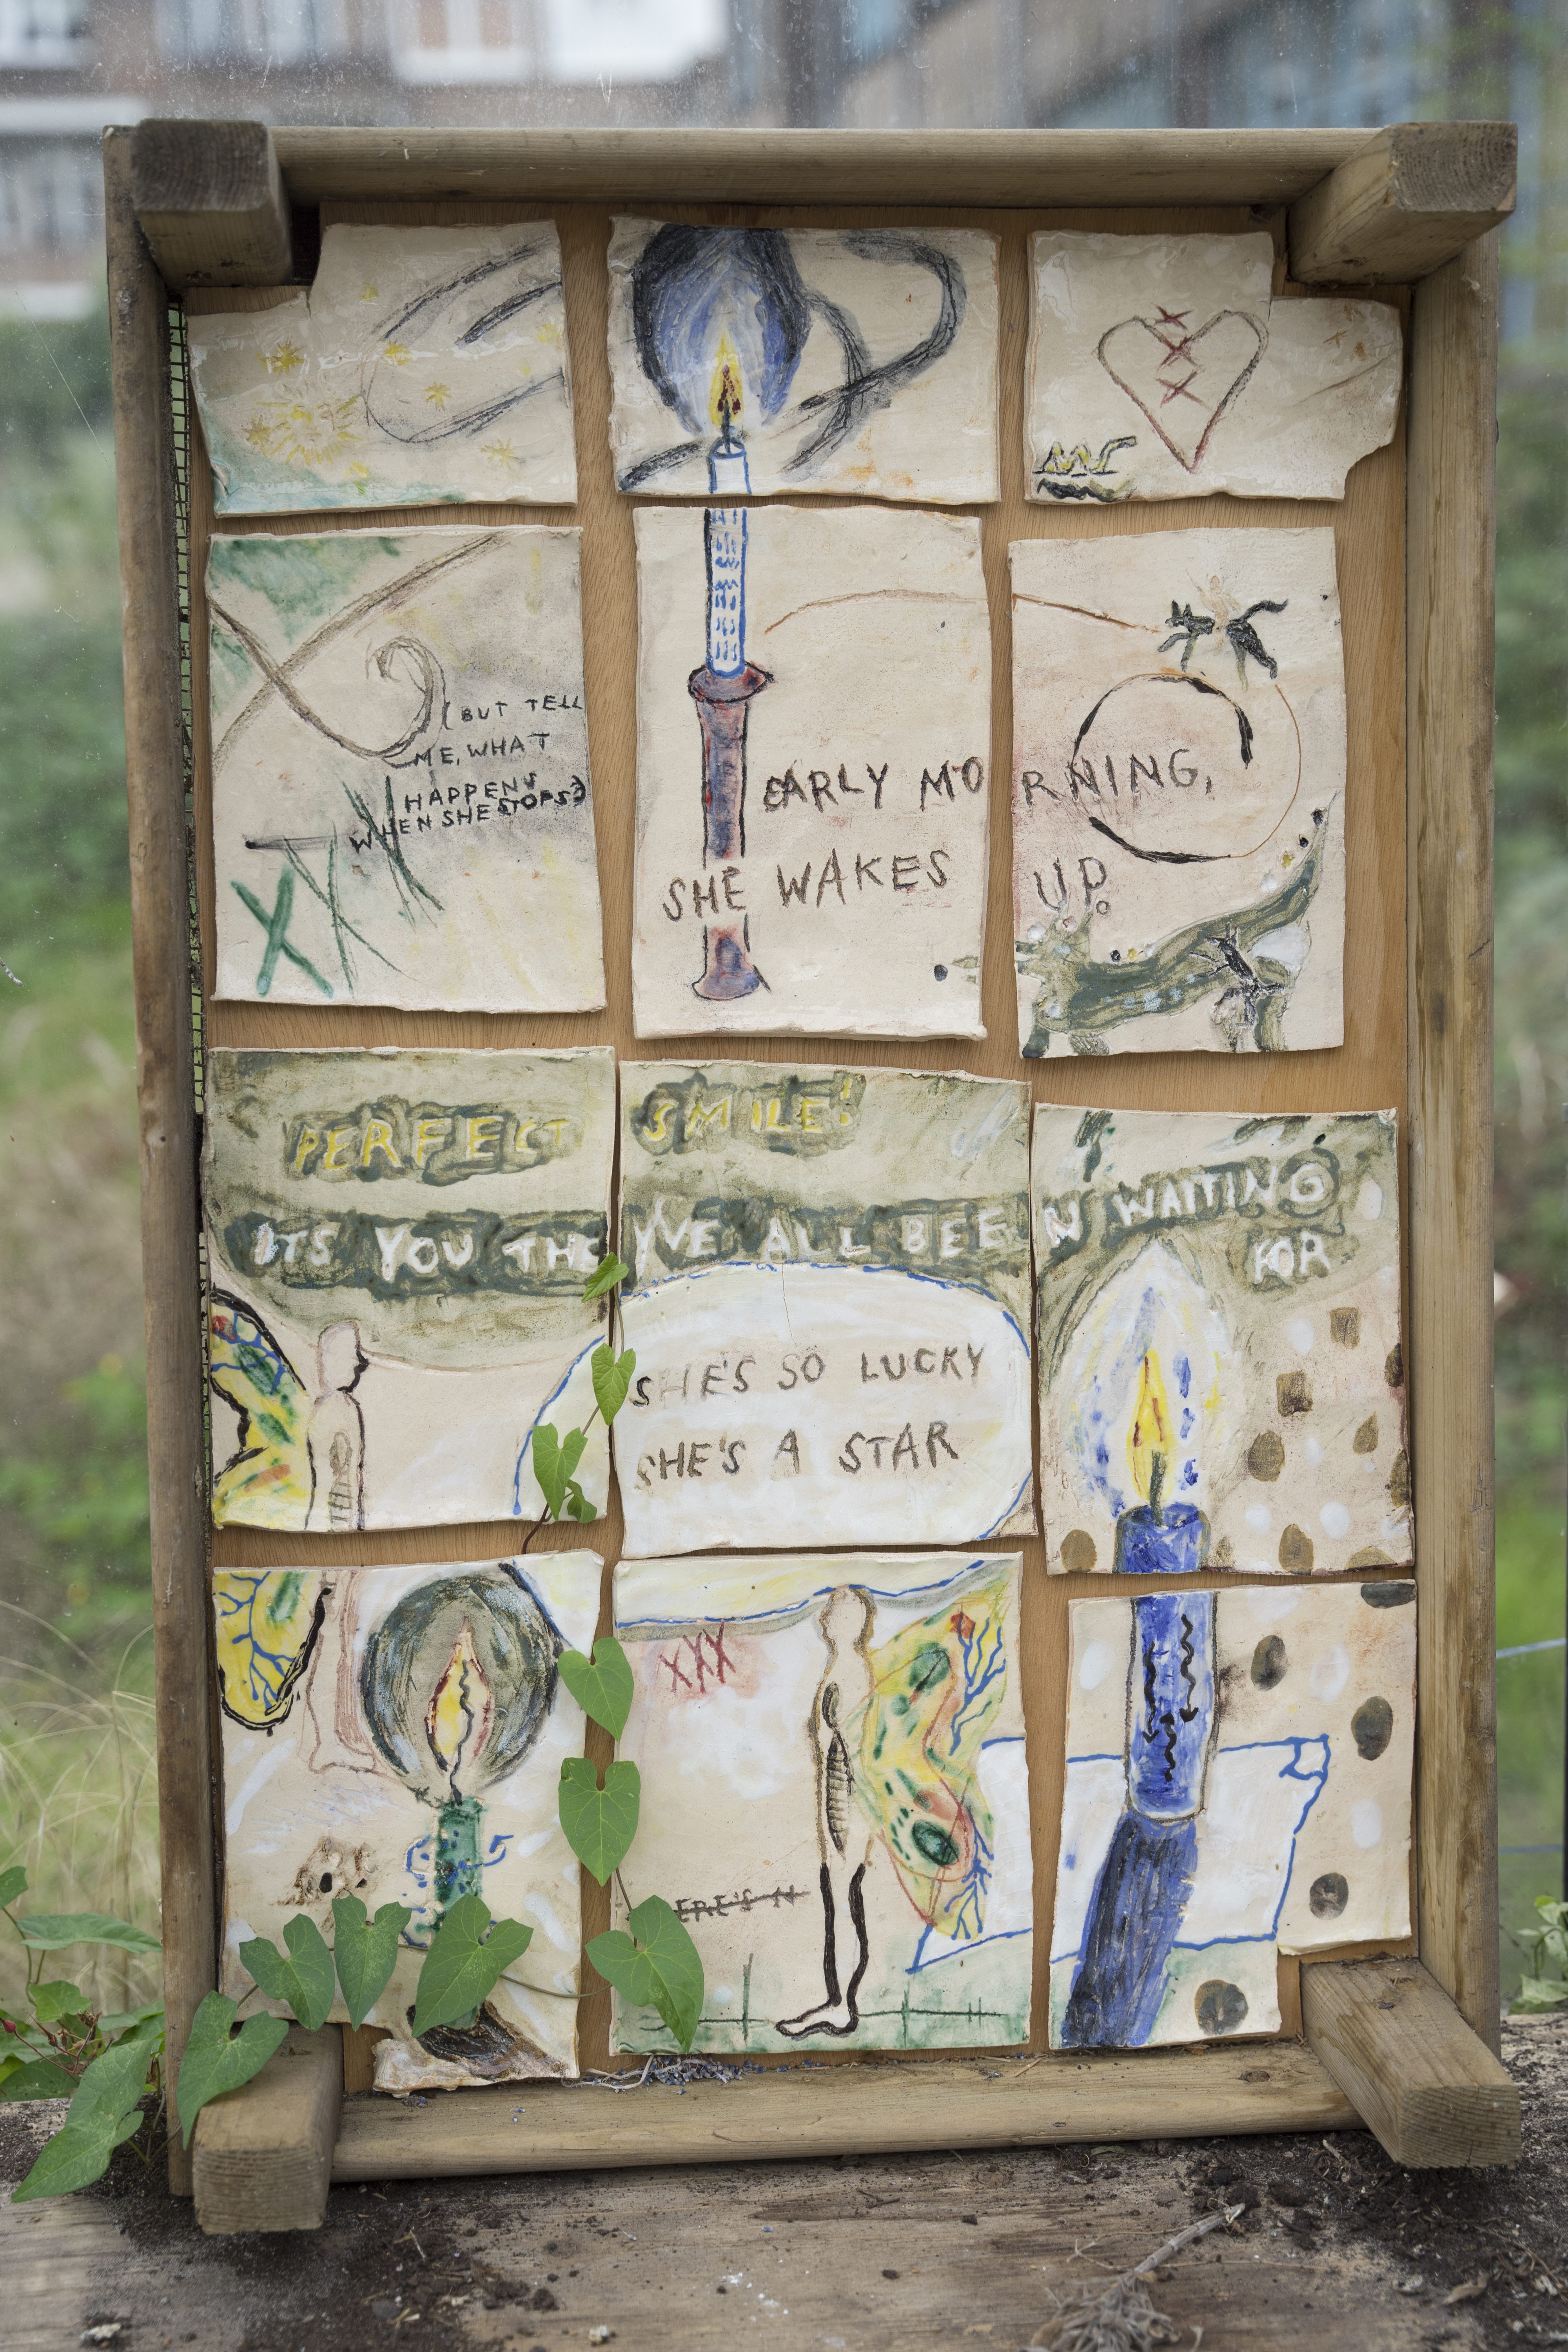 (BUT TELL
ME, WHAT
HAPPENS
WHEN SHE STOPS?)
EARLY MORNING,
SHE WAKES UP
PERFECT SMILE!
ITS YOU THEYVE ALL BEEN WAITING
FOR
SHE'S SO LUCKY
SHE'S A STAR
XXX
ERE'S N